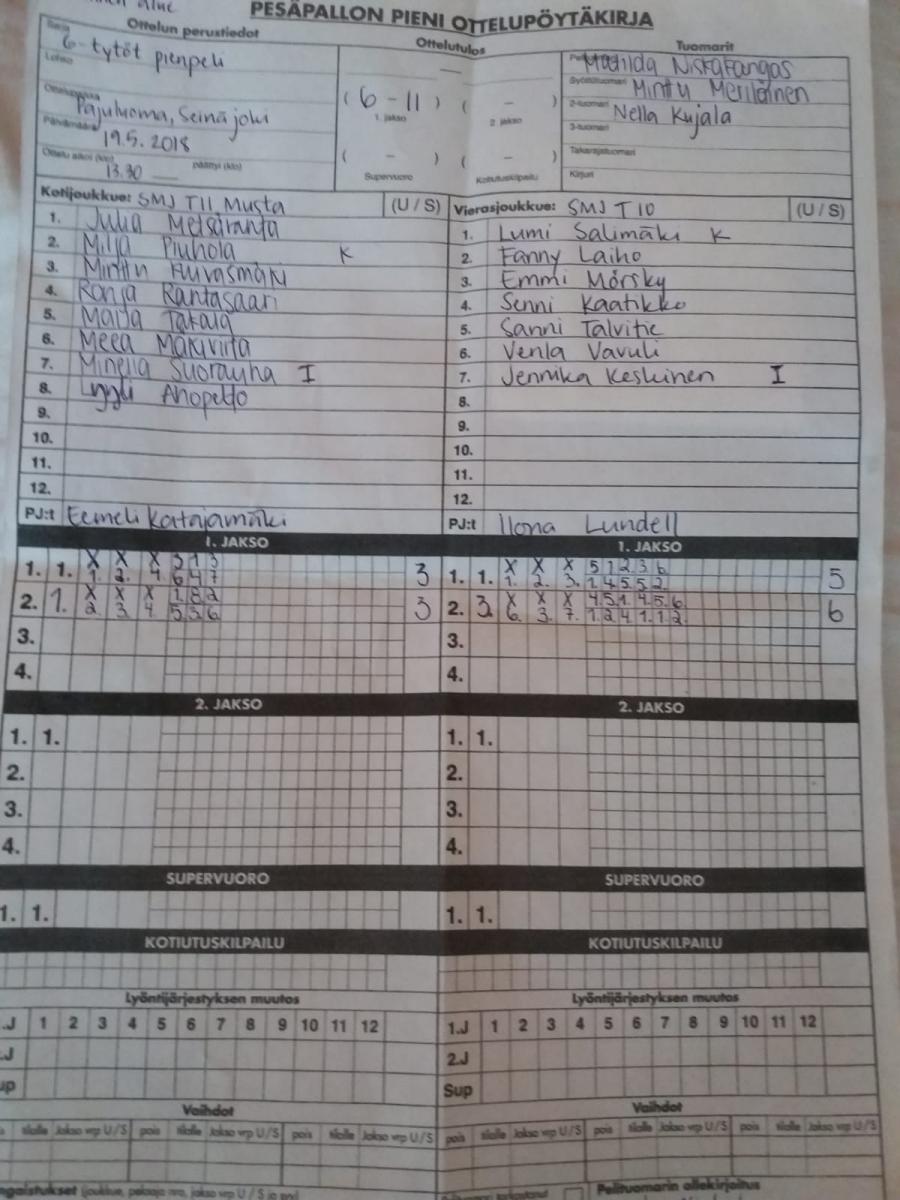 PESÄPALLON PIENI OTTELUPÖYTÄKIRJA
Ottelun perustiedot
Sarja
6-tytöt pienpeli
Lohko
Ottelupaikka
Pajuluoma, Seinäjoki
Päivämäärä
19.5.2018
Ottelu alkoi (klo) 13.30 päättyi (klo)
Ottelutulos
( 6 - 11 ) ( - )
1. jakso 2. jakso
( - ) ( - )
Supervuoro Kotiutuskilpailu
Tuomarit
Matilda Niskakangas
Syöttötuomari Minttu Meriläinen
2-tuomari Nella Kujala
3-tuomari
Takarajatuomari
Kirjuri
Kotijoukkue: SMJ T11 Musta (U / S)
1. Julia Metsäranta
2. Milja Piuhola K
3. Minttu
4. Ronja Rantasaari
5. Maija Takala
6. Meea Mäkivirta
7. Minella Suorauha I
8. Lyyli Ahopelto
9.
10.
11.
12.
PJ:t Eemeli Katajamäki
Vierasjoukkue: SMJ T10 (U / S)
1. Lumi Salimäki K
2. Fanny Laiho
3. Emmi Mörsky
4. Senni Kaatikko
5. Sanni Talvitie
6. Venla Vavuli
7. Jennika Keskinen I
8.
9.
10.
11.
12.
PJ:t Ilona Lundell
1. JAKSO
X X X 3 1 3
1. 1. 1. 2. 4. 6 4 7 3
X X X 1. 8. 2
2. 1. 2. 3. 4. 5 3 6 3
3.
4.
1. JAKSO
X X X 5 1 2 3 6
1. 1. 1. 2. 3. 1. 4. 5 5 2. 5
X X X 4. 5. 1. 4. 5. 6.
2. 3. 6. 3. 7. 1. 2 4 1. 1. 2. 6
3.
4.
2. JAKSO
1. 1.
2.
3.
4.
2. JAKSO
1. 1.
2.
3.
4.
SUPERVUORO
1. 1.
SUPERVUORO
1. 1.
KOTIUTUSKILPAILU
KOTIUTUSKILPAILU
Lyöntijärjestyksen muutos
.J 1 2 3 4 5 6 7 8 9 10 11 12
.J
up
Lyöntijärjestyksen muutos
1.J 1 2 3 4 5 6 7 8 9 10 11 12
2.J
Sup
Vaihdot
tilalle Jakso vrp U/S pois tilalle Jakso vrp U/S pois tilalle Jakso vrp U/S
Vaihdot
pois tilalle Jakso vrp U/S pois tilalle Jakso vrp U/S pois tilalle Jakso vrp U/S
ngaistukset (joukkue, pelaaja nro, jakso vrp U / S ja syy)
Pelituomarin allekirjoitus